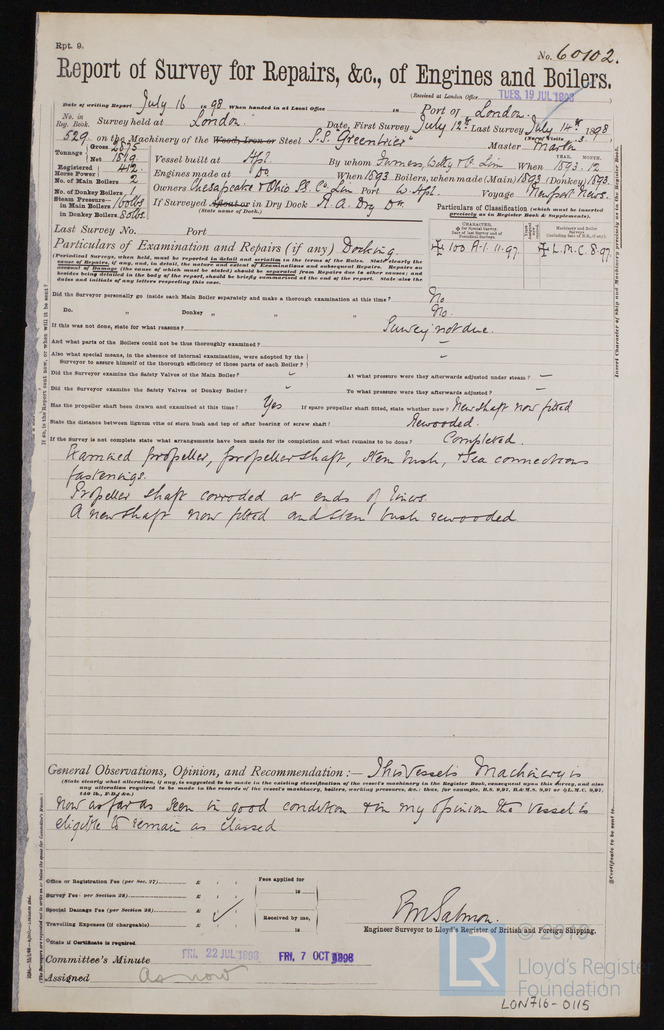 Rpt. 9.
No. 60102.
Report of Survey for Repairs, &c., of Engines and Boilers.
(Received at London Office TUES. 19 JUL 1898 )
Date of writing Report July 16 1898 When handed in at Local Office 18 Port of London.
No. in Reg. Book. Survey held at London Date, First Survey July 12th Last Survey July 14th 1898
529 on the Machinery of the Wood, Iron or Steel S.S. "Greenbrier" Master
(No. of Visits 3
Tonnage Gross 2875 Net 1819 Vessel built at Hpl. By whom Furness, Withy & Co Lim When 1893. 12
YEAR. MONTH.
Registered Horse Power 412 Engines made at Do When 1893 Boilers, when made (Main) 1893 (Donkey) 1893
No. of Main Boilers 2
No. of Donkey Boilers 1 Owners Chesapeake & Ohio SS. Co Lim Port W. Hpl. Voyage Newport News.
Steam Pressure in Main Boilers 160 lbs in Donkey Boilers 80 lbs If Surveyed Afloat or in Dry Dock R. A. Dry Dk
(State name of Dock.)
Particulars of Classification (which must be inserted precisely as in Register Book & Supplements).
Last Survey No. Port
✠ 100 A.1. 11.97 ✠ L.M.C. 8.97
Particulars of Examination and Repairs (if any) Docking.
(Periodical Surveys, when held, must be reported in detail and seriatim in the terms of the Rules. State clearly the cause of Repairs, if any, and, in detail, the nature and extent of Examinations and subsequent Repairs. Repairs on account of Damage (the cause of which must be stated) should be separated from Repairs due to other causes; and besides being detailed in the body of the report, should be briefly summarised at the end of the report. State also the dates and initials of any letters respecting this case.)
Did the Surveyor personally go inside each Main Boiler separately and make a thorough examination at this time? No.
Do. " Donkey " " " " No.
If this was not done, state for what reasons? Survey not due.
And what parts of the Boilers could not be thoroughly examined? –
Also what special means, in the absence of internal examination, were adopted by the Surveyor to assure himself of the thorough efficiency of those parts of each Boiler? –
Did the Surveyor examine the Safety Valves of the Main Boiler? At what pressure were they afterwards adjusted under steam? –
Did the Surveyor examine the Safety Valves of Donkey Boiler? To what pressure were they afterwards adjusted? –
Has the propeller shaft been drawn and examined at this time? Yes If spare propeller shaft fitted, state whether new? New shaft now fitted
State the distance between lignum vitæ of stern bush and top of after bearing of screw shaft? Rewooded.
If the Survey is not complete state what arrangements have been made for its completion and what remains to be done? Completed.
Examined propeller, propellershaft, stern bush, & sea connections
fastenings.
Propeller shaft corroded at ends of liners.
A new shaft now fitted and stern bush rewooded.
General Observations, Opinion, and Recommendation:— This Vessel's Machinery is
(State clearly what alteration, if any, is suggested to be made in the existing classification of the vessel's machinery in the Register Book, consequent upon this survey, and also any alteration required to be made in the records of the vessel's machinery, boilers, working pressures, &c.: thus, for example, B.S. 9,97, B.&M.S. 9,97 or ✠L.M.C. 9,97, 140 lb., F.D., &c.)
now as far as seen in good condition & in my opinion the vessel is
eligible to remain as classed
Office or Registration Fee (per Sec. 27) £ : : Fees applied for
18
Survey Fee (per Section 28) £ : :
Special Damage Fee (per Section 28) £ : : Received by me,
Travelling Expenses (if chargeable) £ : : 18
EM Salmon.
Engineer Surveyor to Lloyd's Register of British and Foreign Shipping.
State if Certificate is required
Committee's Minute FRI. 22 JUL 1898 FRI. 7 OCT 1898
Assigned as now
© 2019
LR Lloyd's Register
Foundation
LON716-0115